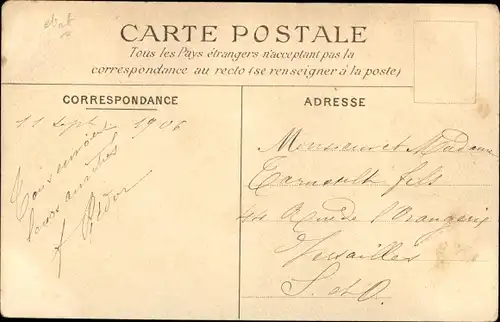 ebat
CARTE POSTALE
Tous les Pays étrangers n'acceptant pas la
correspondance au recto (se renseigner à la poste)
CORRESPONDANCE
11 Sept 1906
ADRESSE
Monsieur et Madame
Tarnault fils
44 Rue de l'Orangerie
Versailles
S. et O.